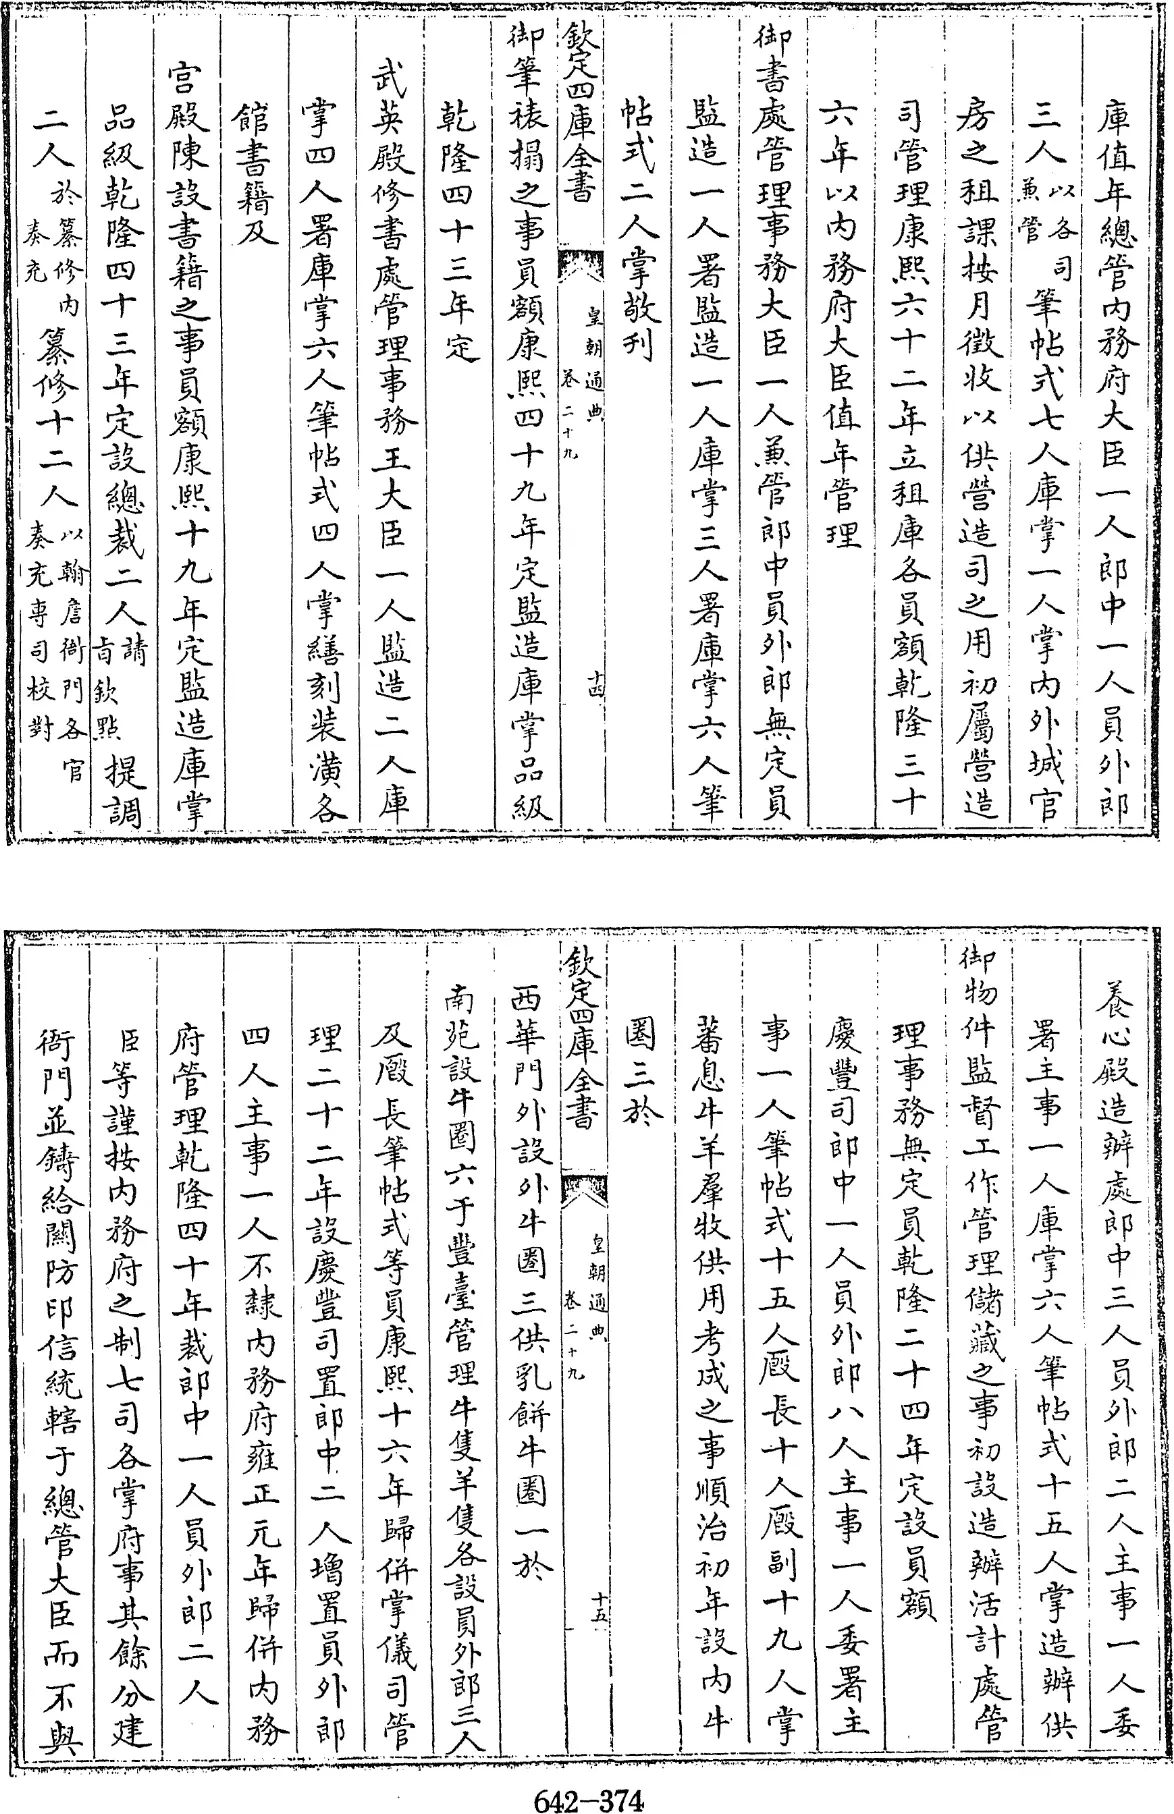 庫值年總管內務府大臣一人郎中一人員外郎
三人以各司兼管筆帖式七人庫掌一人掌內外城官
房之租課按月徵收以供營造司之用初屬營造
司管理康熙六十二年立租庫各員額乾隆三十
六年以內務府大臣值年管理
御書處管理事務大臣一人兼管郎中員外郎無定員
監造一人署監造一人庫掌三人署庫掌六人筆
帖式二人掌敬刊
欽定四庫全書
皇朝通典
卷二十九
十四
御筆裱搨之事員額康熙四十九年定監造庫掌品級
乾隆四十三年定
武英殿修書處管理事務王大臣一人監造二人庫
掌四人署庫掌六人筆帖式四人掌繕刻裝潢各
館書籍及
宮殿陳設書籍之事員額康熙十九年定監造庫掌
品級乾隆四十三年定設總裁二人請旨欽點提調
二人於纂修內奏充纂修十二人以翰詹衙門各官奏充專司校對
養心殿造辦處郎中三人員外郎二人主事一人委
署主事一人庫掌六人筆帖式十五人掌造辦供
御物件監督工作管理儲藏之事初設造辦活計處管
理事務無定員乾隆二十四年定設員額
慶豐司郎中一人員外郎八人主事一人委署主
事一人筆帖式十五人廄長十人廄副十九人掌
蕃息牛羊羣牧供用考成之事順治初年設內牛
圈三於
欽定四庫全書
皇朝通典
卷二十九
十五
西華門外設外牛圈三供乳餅牛圈一於
南苑設牛圈六于豐臺管理牛隻羊隻各設員外郎三人
及廄長筆帖式等員康熙十六年歸併掌儀司管
理二十二年設慶豐司置郎中二人增置員外郎
四人主事一人不隸內務府雍正元年歸併內務
府管理乾隆四十年裁郎中一人員外郎二人
臣等謹按內務府之制七司各掌府事其餘分建
衙門並鑄給關防印信統轄于總管大臣而不與
642-374